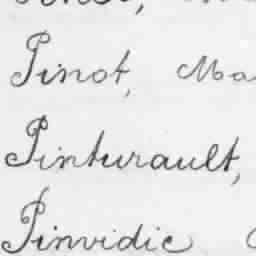 Pinot, Ma
Pinturault,
Pinvidic